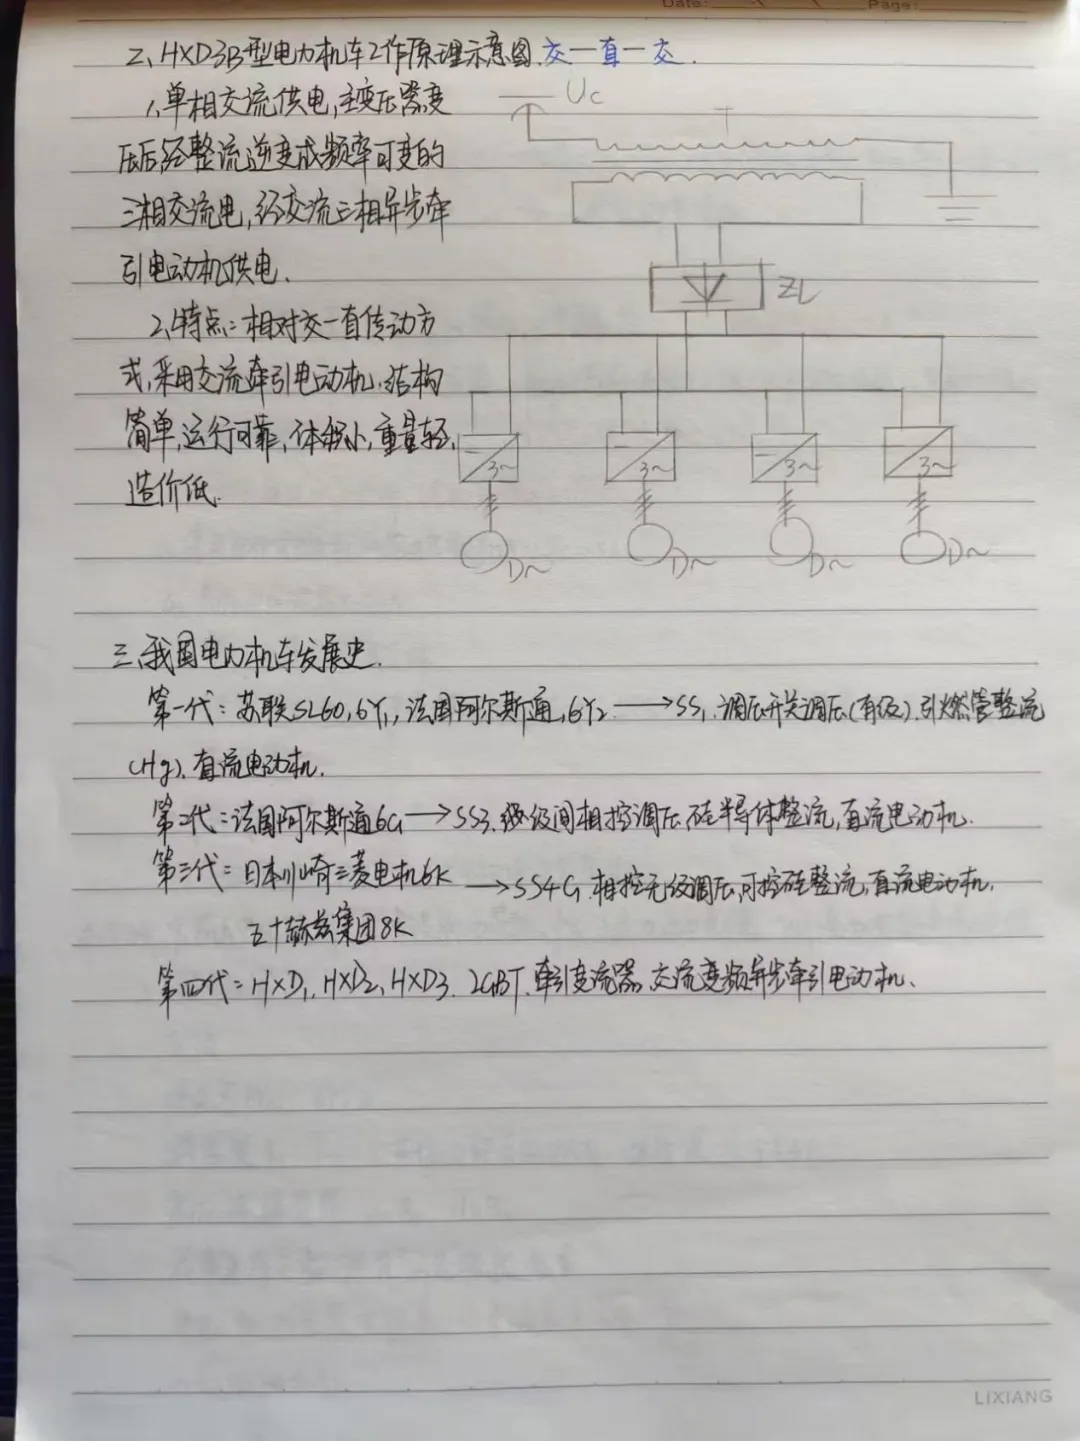 Date: Page:
二、HXD3B型电力机车工作原理示意图.交一直一交.
1、单相交流供电,主变压器变
压后经整流逆变成频率可变的
三相交流电,给交流三相异步牵
引电动机供电.
2、特点:相对交一直传动方
式,采用交流牵引电动机,结构
简单,运行可靠,体积小,重量轻,
造价低.
Uc
T
ZL
3~ 3~ 3~ 3~
D~ D~ D~ D~
三、我国电力机车发展史.
第一代:苏联SL60,6Y1,法国阿尔斯通,6Y2.→SS1.调压开关调压(有级).引燃管整流
(Hg)、直流电动机.
第二代:法国阿尔斯通6G→SS3.级间相控调压.硅半导体整流,直流电动机.
第三代:日本川崎三菱电机6K →SS4G.相控无级调压,可控硅整流,直流电动机.
五十赫兹集团8K
第四代:HXD1、HXD2、HXD3.IGBT.牵引变流器.交流变频异步牵引电动机、
LIXIANG